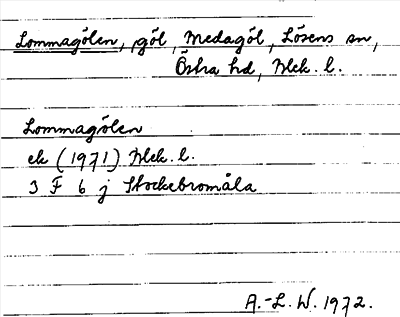 Lommagölen, göl, Medagöl, Lösens sn,
Östra hd, Blek. l.
Lommagölen
ek (1971) Blek. l.
3 F 6 j Stockebromåla
A.-L. W. 1972.